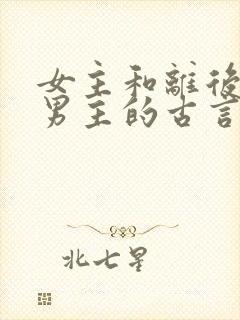 女主和離後
男主的古言
北七星